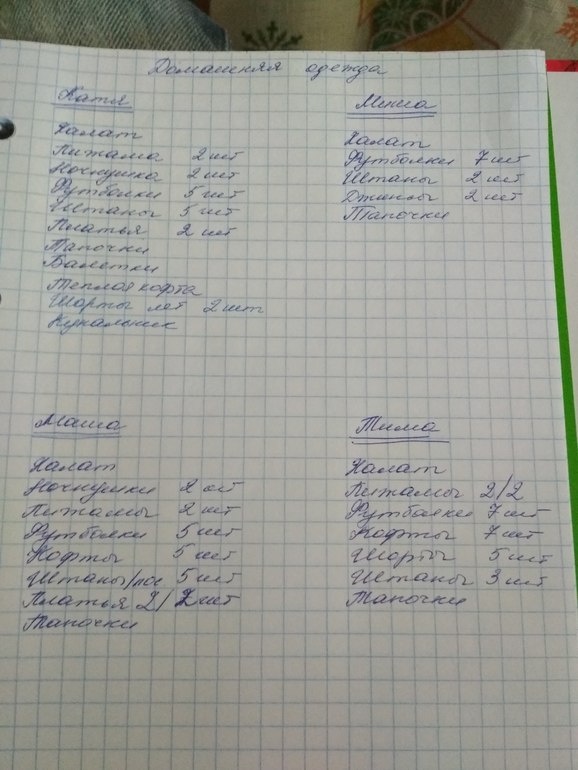 Домашняя одежда
Катя
Халат
Пижама 2 шт
Ночнушка 2 шт
Футболки 5 шт
Штаны 5 шт
Платья 2 шт
Тапочки
Балетки
Теплая кофта
Шорты лет 2 шт
Купальник
Миша
Халат
Футболки 7 шт
Штаны 2 шт
Джинсы 2 шт
Тапочки
Маша
Халат
Ночнушки 2 шт
Пижамы 2 шт
Футболки 5 шт
Кофты 5 шт
Штаны/лос 5 шт
Платья 2/2 шт
Тапочки
Тима
Халат
Пижамы 2/2
Футболки 7 шт
Кофты 7 шт
Шорты 5 шт
Штаны 3 шт
Тапочки